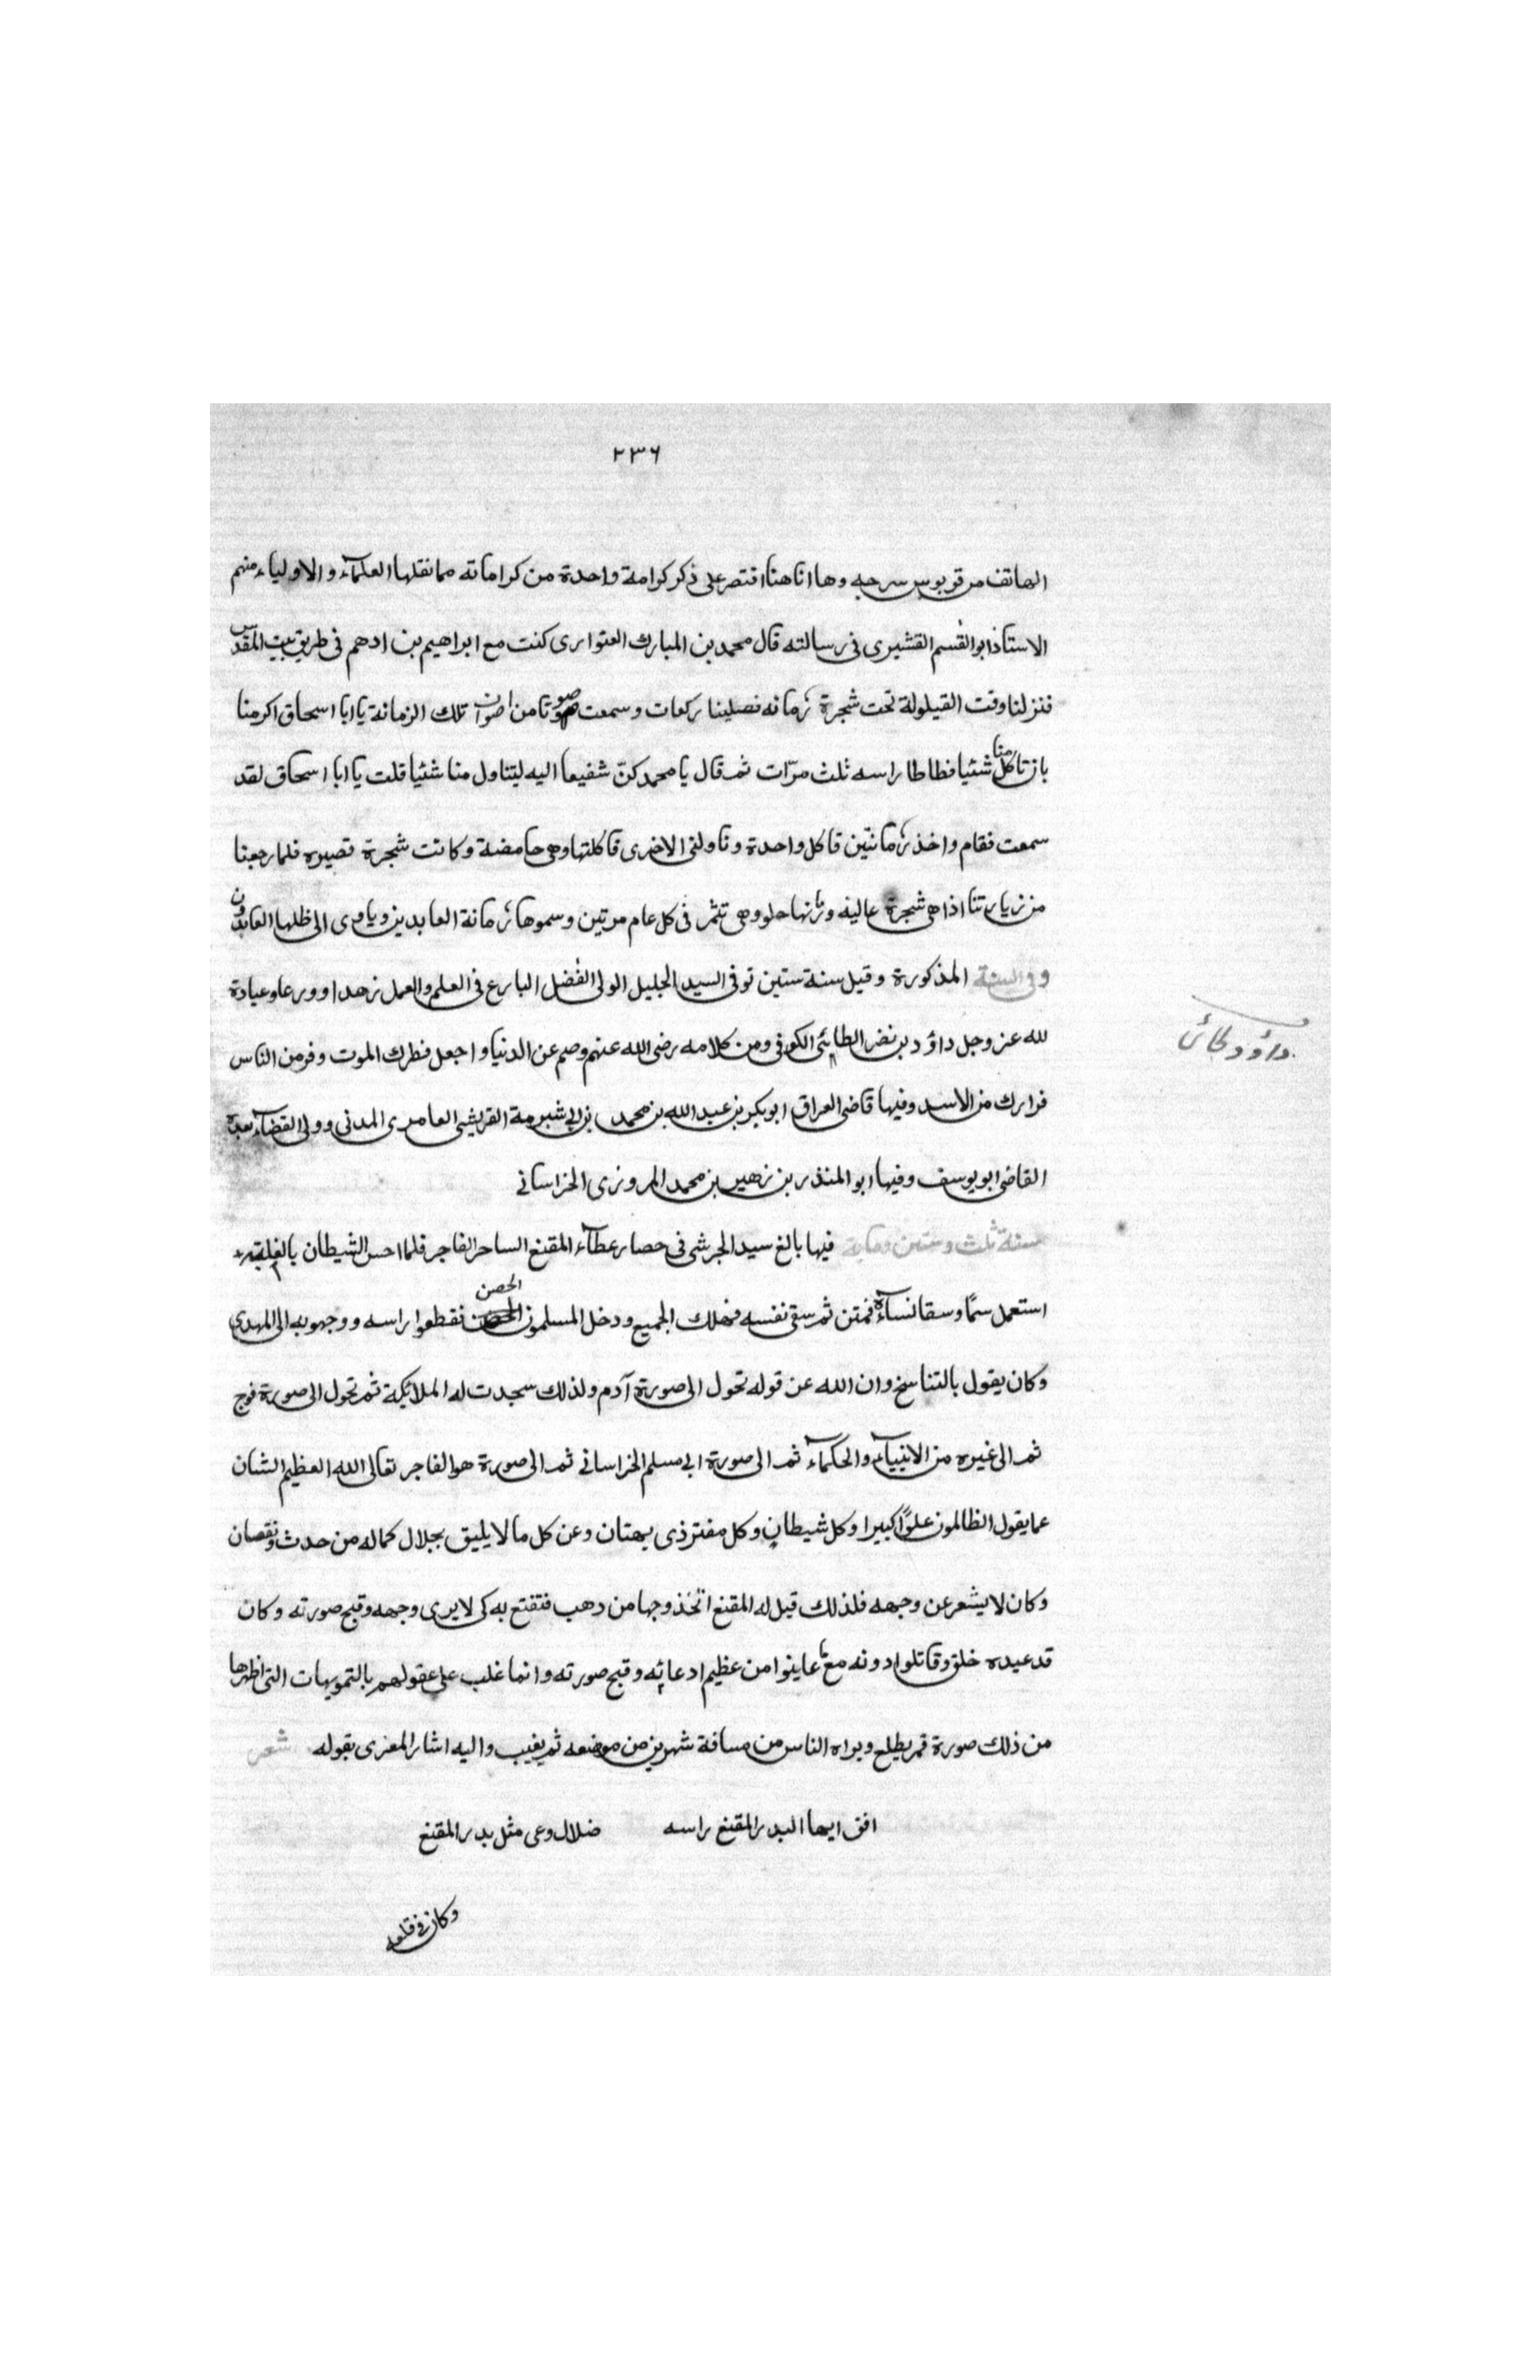 ٢٣٦
الهاتف من قربوس سرجه وها انا هنا اقتصر على ذكر كرامة واحدة من كراماته مما نقلها العلمآء والاولياء منهم
الاستاذ ابو القسم القشيرى فى رسالته قال محمد بن المبارك العتوارى كنت مع ابراهيم بن ادهم فى طريق بيت المقدس
فنزلنا وقت القيلولة تحت شجرة رمانه فصلينا ركعات وسمعت صوتا من اصوان تلك الرمانة يا ابا اسحاق اكرمنا
بان تاكل منا شئيا فطاطا راسه ثلث مرّات ثم قال يا محمد كنّ شفيعا اليه ليتناول منا شئيا قلت يا ابا اسحاق لقد
سمعت فقام واخذ رمانتين فاكل واحدة وناولنى الاخرى فاكلتها وهى حامضة وكانت شجرة قصيره فلما رجعنا
من زيارتنا اذا هى شجرة عاليه ورمانها حلو وهى تثمر فى كل عام مرتين وسموها رمانة العابدين وياوى الى ظلها العابدون
وفى السنة المذكورة وقيل سنة ستين توفى السيد الجليل الولى الفضل البارع فى العلم والعمل زهدا وورعا وعبادة
لله عز وجل داؤد بن نضر الطائى الكوفى ومن كلامه رضى الله عنهم وصم عن الدنيا واجعل فطرك الموت وفر من الناس
داؤد طائى
فرارك من الاسد وفيها قاضى العراق ابو بكر بن عبد الله بن محمد بن ابى شبرمة القريشى العامرى المدنى وولى القضآء بعده
القاضى ابو يوسف وفيها ابو المنذر بن زهير بن محمد المروزى الخراسانى
سنة ثلث وستين وماية فيها بالغ سيد الجرشى فى حصار عطآء المقنع الساحر الفاجر فلما احس الشيطان بالغلبة
استعمل سمًا وسقا نسآءه فمتن ثم سقى نفسه فهلك الجميع ودخل المسلمون الحصن فقطعوا راسه ووجهوبه الى المهدي
وكان يقول بالتناسخ وان الله عن قوله تحول الى صورة آدم ولذلك سجدت له الملائكة ثم تحول الى صورة فوج
ثم الى غيره من الانبيآء والحكمآء ثم الى صورة ابى مسلم الخراسانى ثم الى صورة هو الفاجر تعالى الله العظيم الشان
عما يقول الظالمون علوًا كبيرا وكل شيطان وكل مفتر ذى بهتان وعن كل ما لا يليق بجلال كماله من حدث ونقصان
وكان لا يشعر عن وجهه فلذلك قيل له المقنع اتخذ وجها من دهب فتقنع به كى لا يرى وجهه وقبح صورته وكان
قد عبده خلق وقاتلوا دونه مع ما عاينوا من عظيم ادعائه وقبح صورته وانما غلب على عقولهم بالتمويهات التى اظهرها
من ذلك صورة قمر يطلع ويراه الناس من مسافة شهرين من موضعه ثم يغيب واليه اشار المعزى بقوله شعر
افق ايها البدر المقنع راسه ضلال وعى مثل بدر المقنع
وكان فى قلعه